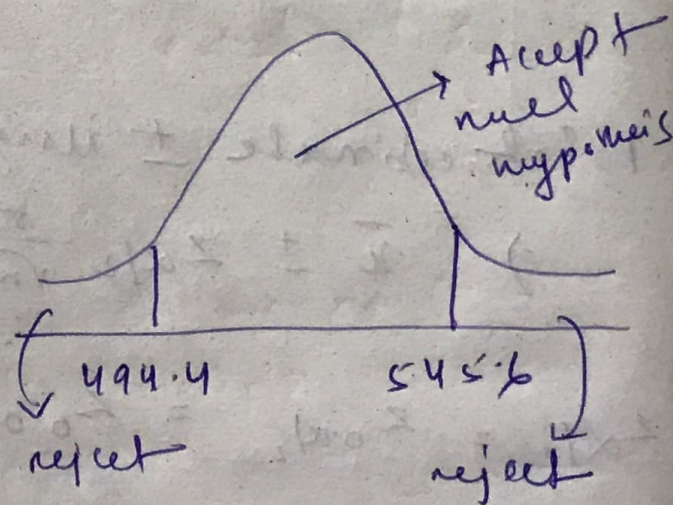 Accept
null
hypothesis
494.4 545.6
reject
reject